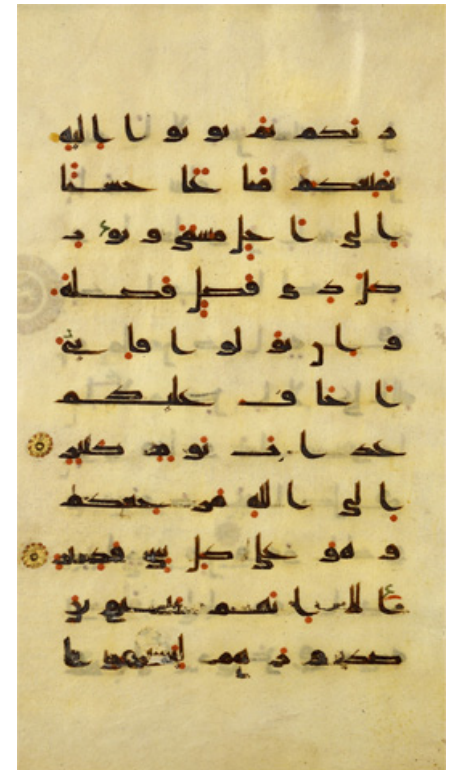 ربكم ثم توبوا إليه
يمتعكم متاعا حسنا
إلى أجل مسمى ويؤت
كل ذي فضل فضله
وإن تولوا فإني
أخاف عليكم
عذاب يوم كبير
إلى الله مرجعكم
وهو على كل شيء قدير
ألا إنهم يثنون
صدورهم ليستخفوا